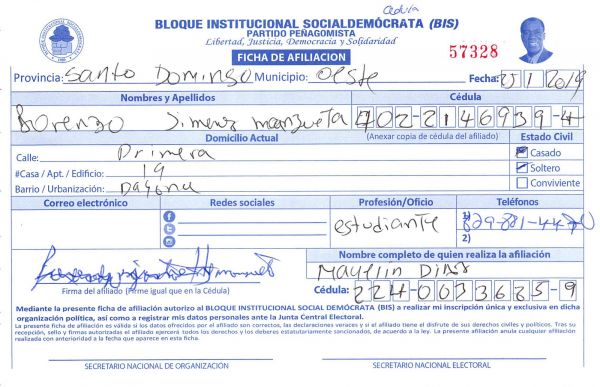 Cédula
BLOQUE INSTITUCIONAL SOCIALDEMÓCRATA (BIS)
PARTIDO PEÑAGOMISTA
Libertad, Justicia, Democracia y Solidaridad
FICHA DE AFILIACION
57328
Provincia: Santo Domingo Municipio: Oeste Fecha: 25/1/2019
Nombres y Apellidos Cédula
Lorenzo Jimenez manzueta 402-2146939-4
Domicilio Actual (Anexar copia de cédula del afiliado) Estado Civil
Calle: Primera Casado
#Casa / Apt. / Edificio: 19 Soltero
Barrio / Urbanización: Conviviente
Correo electrónico Redes sociales Profesión/Oficio Teléfonos
estudiante 1) 829-881-44
2)
Nombre completo de quien realiza la afiliación
Firma del afiliado (Firme igual que en la Cédula) Cédula: 224-0033685-9
Mediante la presente ficha de afiliación autorizo al BLOQUE INSTITUCIONAL SOCIAL DEMÓCRATA (BIS) a realizar mi inscripción única y exclusiva en dicha
organización política, así como a registrar mis datos personales ante la Junta Central Electoral.
La presente ficha de afiliación es válida si los datos ofrecidos por el afiliado son correctos, las declaraciones veraces y si el titular tiene el disfrute de sus derechos civiles y políticos. Tras su
recepción, sello y firmas autorizadas el afiliado ejercerá todos los derechos y los deberes estatutariamente sancionados, de acuerdo a la ley. La presente afiliación anula cualquier afiliación
realizada con anterioridad a la fecha que aparece en esta ficha.
SECRETARIO NACIONAL DE ORGANIZACIÓN SECRETARIO NACIONAL ELECTORAL